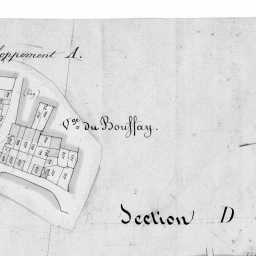 loppement A.
Vge du Bouffay.
Section D